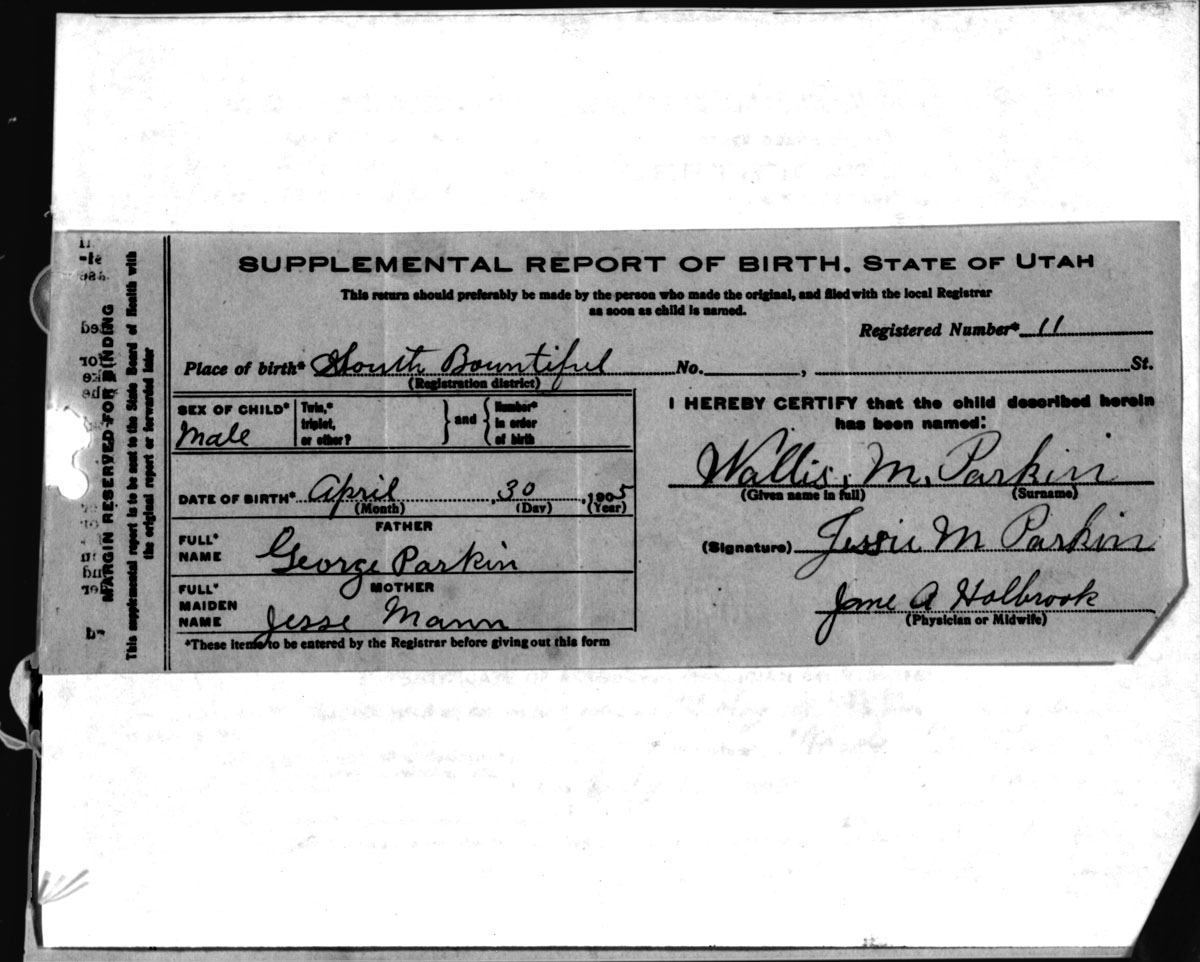 SUPPLEMENTAL REPORT OF BIRTH. STATE OF UTAH
This return should preferably be made by the person who made the original, and filed with the local Registrar
as soon as child is named.
Registered Number* 11
Place of birth* South Bountiful No. , St.
(Registration district)
SEX OF CHILD* Male
Twin,* triplet, or other? } and { Number* in order of birth
DATE OF BIRTH* April , 30 , 1905
(Month) (Day) (Year)
FATHER
FULL* NAME George Parkin
MOTHER
FULL* MAIDEN NAME Jesse Mann
*These items to be entered by the Registrar before giving out this form
I HEREBY CERTIFY that the child described herein
has been named:
Wallis, M, Parkin
(Given name in full) (Surname)
(Signature) Jessie M Parkin
Jane A Holbrook
(Physician or Midwife)
MARGIN RESERVED FOR BINDING
This supplemental report is to be sent to the State Board of Health with
the original report or forwarded later